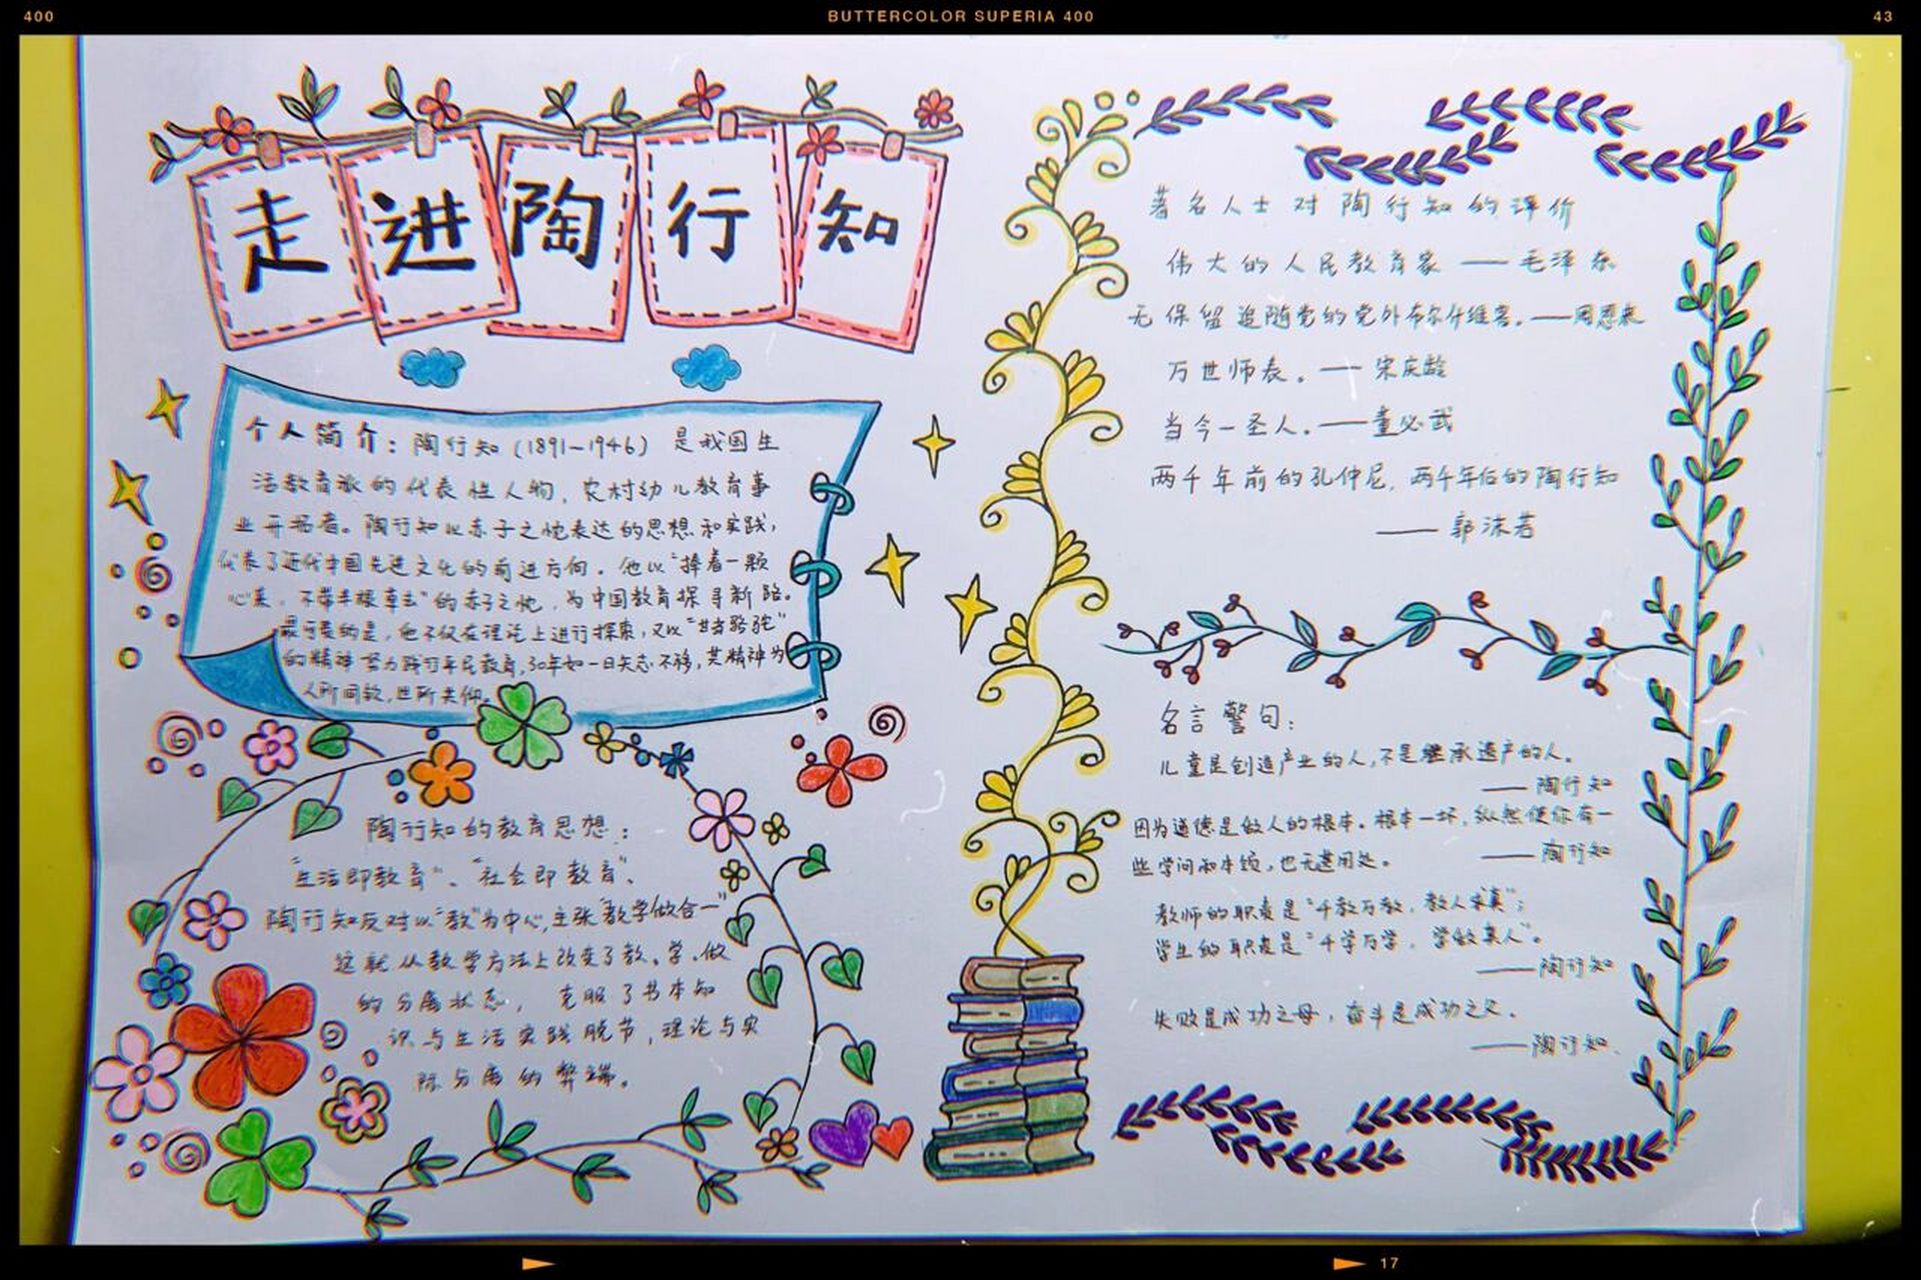 400
BUTTERCOLOR SUPERIA 400
43
走进陶行知
个人简介：陶行知（1891-1946） 是我国生
活教育派的代表性人物，农村幼儿教育事
业开拓者。陶行知以赤子之忱表达的思想和实践，
代表了近代中国先进文化的前进方向。他以“捧着一颗
心来，不带半根草去”的赤子之忱，为中国教育探寻新路。
最可贵的是，他不仅在理论上进行探索，又以“甘当骆驼”
的精神努力践行平民教育，30年如一日矢志不移，其精神为
人所同钦，世所共仰。
陶行知的教育思想：
“生活即教育”、“社会即教育”、
陶行知反对以“教”为中心，主张“教学做合一”
这就从教学方法上改变了教、学、做
的分离状态， 克服了书本知
识与生活实践脱节，理论与实
际分离的弊端。
著名人士对陶行知的评价
伟大的人民教育家 ——毛泽东
无保留追随党的党外布尔什维客。——周恩来
万世师表。——宋庆龄
当今一圣人。——董必武
两千年前的孔仲尼，两千年后的陶行知
——郭沫若
名言警句：
儿童是创造产业的人，不是继承遗产的人。
——陶行知
因为道德是做人的根本。根本一坏，纵然使你有一
些学问和本领，也无甚用处。 ——陶行知
教师的职责是“千教万教，教人求真”；
学生的职责是“千学万学，学做真人”。
——陶行知
失败是成功之母，奋斗是成功之父。
——陶行知.
17